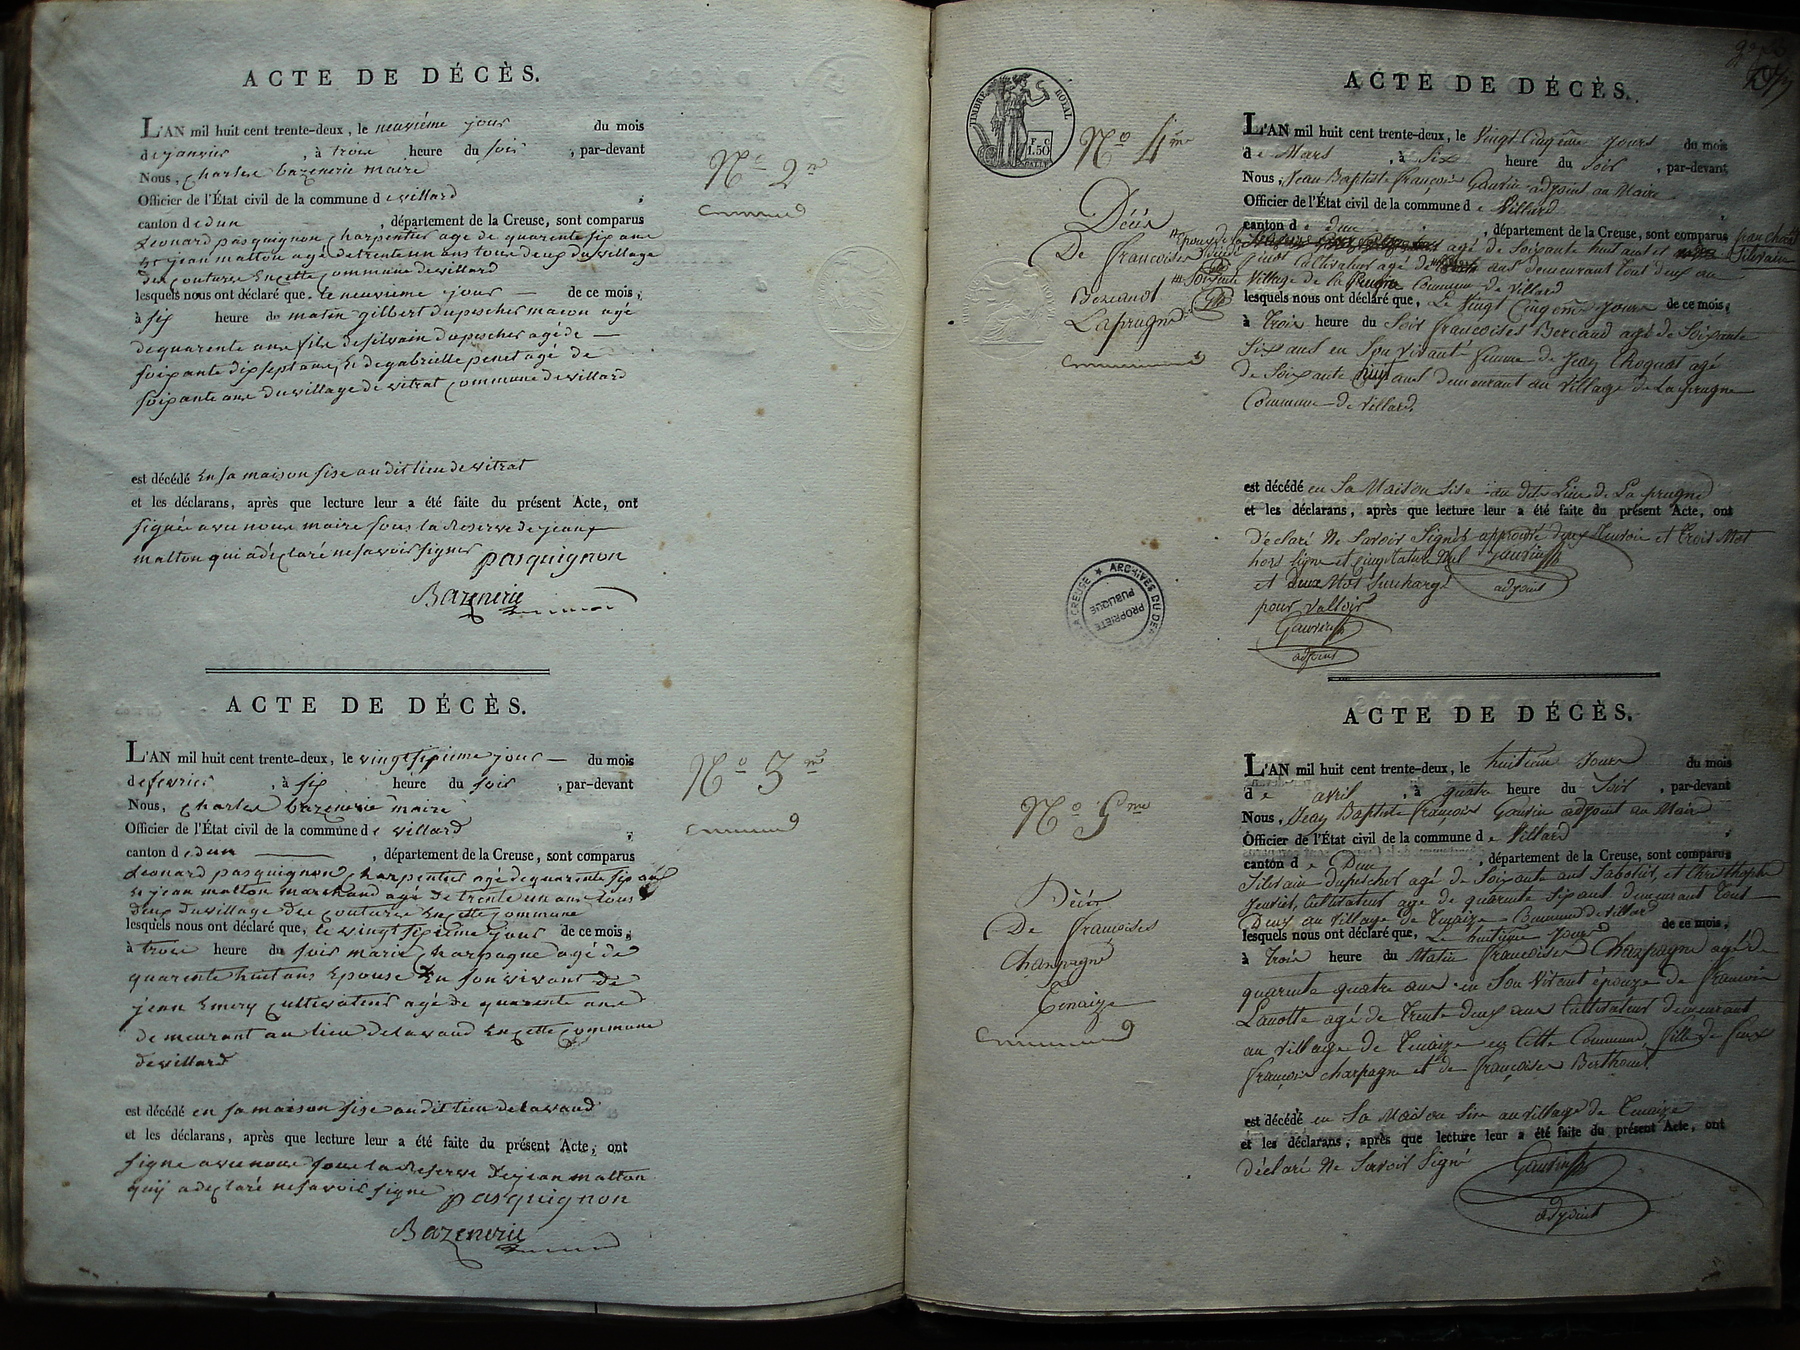 ACTE DE DÉCÈS.
L'AN mil huit cent trente-deux, le neuvième jour du mois
de janvier, à trois heure du soir, par-devant
Nous, charles bazenerie maire
Officier de l'État civil de la commune de villard
canton de dun, département de la Creuse, sont comparus
Leonard pasquignon charpentier age de quarente six ans
et jean malton agé de trente un ans tous deux du village
des coutures en cette commune de villard
lesquels nous ont déclaré que, le neuvième jour de ce mois,
à six heure de matin gilbert dupescher macon agé
de quarente ans fils de silvain dupescher agé de
soixante dix sept ans, et de gabrielle penet agé de
soixante ans du village de vitrat commune de villard
est décédé en sa maison sise au dit lieu de vitrat
et les déclarans, après que lecture leur a été faite du présent Acte, ont
signé avec nous maire sous la reserve de jean
malton qui a déclaré ne savoir signer pasquignon
Bazenerie
N.o 2
ACTE DE DÉCÈS.
L'AN mil huit cent trente-deux, le vingt sixieme jour du mois
de fevrier, à six heure du soir, par-devant
Nous, charles bazenerie maire
Officier de l'État civil de la commune de villard
canton de dun, département de la Creuse, sont comparus
Leonard pasquignon charpentier agé de quarente six ans
et jean malton marchand agé de trente un ans tous
deux du village des coutures en cette commune
lesquels nous ont déclaré que, le vingt sixieme jour de ce mois,
à trois heure du soir marie charpagne agé de
quarente huit ans epouse en son vivant de
jean Emery cultivateur agé de quarente ans
demeurant au lieu de lavaud en cette commune
de villard
est décédé en sa maison sise au dit lieu de lavaud
et les déclarans, après que lecture leur a été faite du présent Acte, ont
signe avec nous sous la reserve de jean malton
quij a déclaré ne savoir signe pasquignon
Bazenerie
N.o 3
TIMBRE ROYAL
F. C
1.50
N.o 4me
Décès
De francoises
Laprugne
ACTE DE DÉCÈS.
L'AN mil huit cent trente-deux, le Vingt Cinquieme jours du mois
de Mars, à Six heure du Soir, par-devant
Nous, Jean Baptiste francois Gauvin adjoint au Maire
Officier de l'État civil de la commune de Villard
canton de dun, département de la Creuse, sont comparus
agé de Soixante huit ans et
Cultivateur agé de ans demeurant Tout deux au
Village de la Prugne Commune de Villard
lesquels nous ont déclaré que, Le Vingt Cinquieme jours de ce mois,
à Trois heure du Soir francoises agé de Soixante
Six ans en Son Vivant femme de Jean agé
De Soixante huit ans demeurant au Village de La prugne
Commune de Villard
est décédé en Sa Maison Sise au dit Lieu de La prugne
et les déclarans, après que lecture leur a été faite du présent Acte, ont
Déclaré Ne Savoir Signer approuvé deux Renvoie et trois Mot
hors ligne et Nul Gauvin
et deux Mot Surchargé adjoint
pour Valloir
Gauvin
adjoint
ARCHIVES DU DÉP
LA CREUSE
PROPRIÉTÉ
PUBLIQUE
N.o 5me
Décès
De francoises
Charpagne
Tenaize
ACTE DE DÉCÈS.
L'AN mil huit cent trente-deux, le huitieme Jours du mois
de avril, à quatre heure du Soir, par-devant
Nous, Jean Baptiste francois Gauvin adjoint au Maire
Officier de l'État civil de la commune de Villard
canton de Dun, département de la Creuse, sont comparus
Silvain Dupescher agé de Soixante ans Sabotier, et Christhophe
Cultivateur agé de quarente Six ans demeurant Tout
Deux au Village de Tenaize Commune de Villard
lesquels nous ont déclaré que, Le huitieme jours de ce mois,
à Trois heure du Matin francoises Charpagne agé de
quarente quatre ans en Son Vivant épouze de francois
Lanotte agé de Trente deux ans Cultivateur demeurant
au Village de Tenaize en Cette Commune, fille de feux
francois charpagne et de francoises Berthomet
est décédé en Sa Maison Sise au village de Tenaize
et les déclarans, après que lecture leur a été faite du présent Acte, ont
Déclaré Ne Savoir Signé Gauvin
adjoint